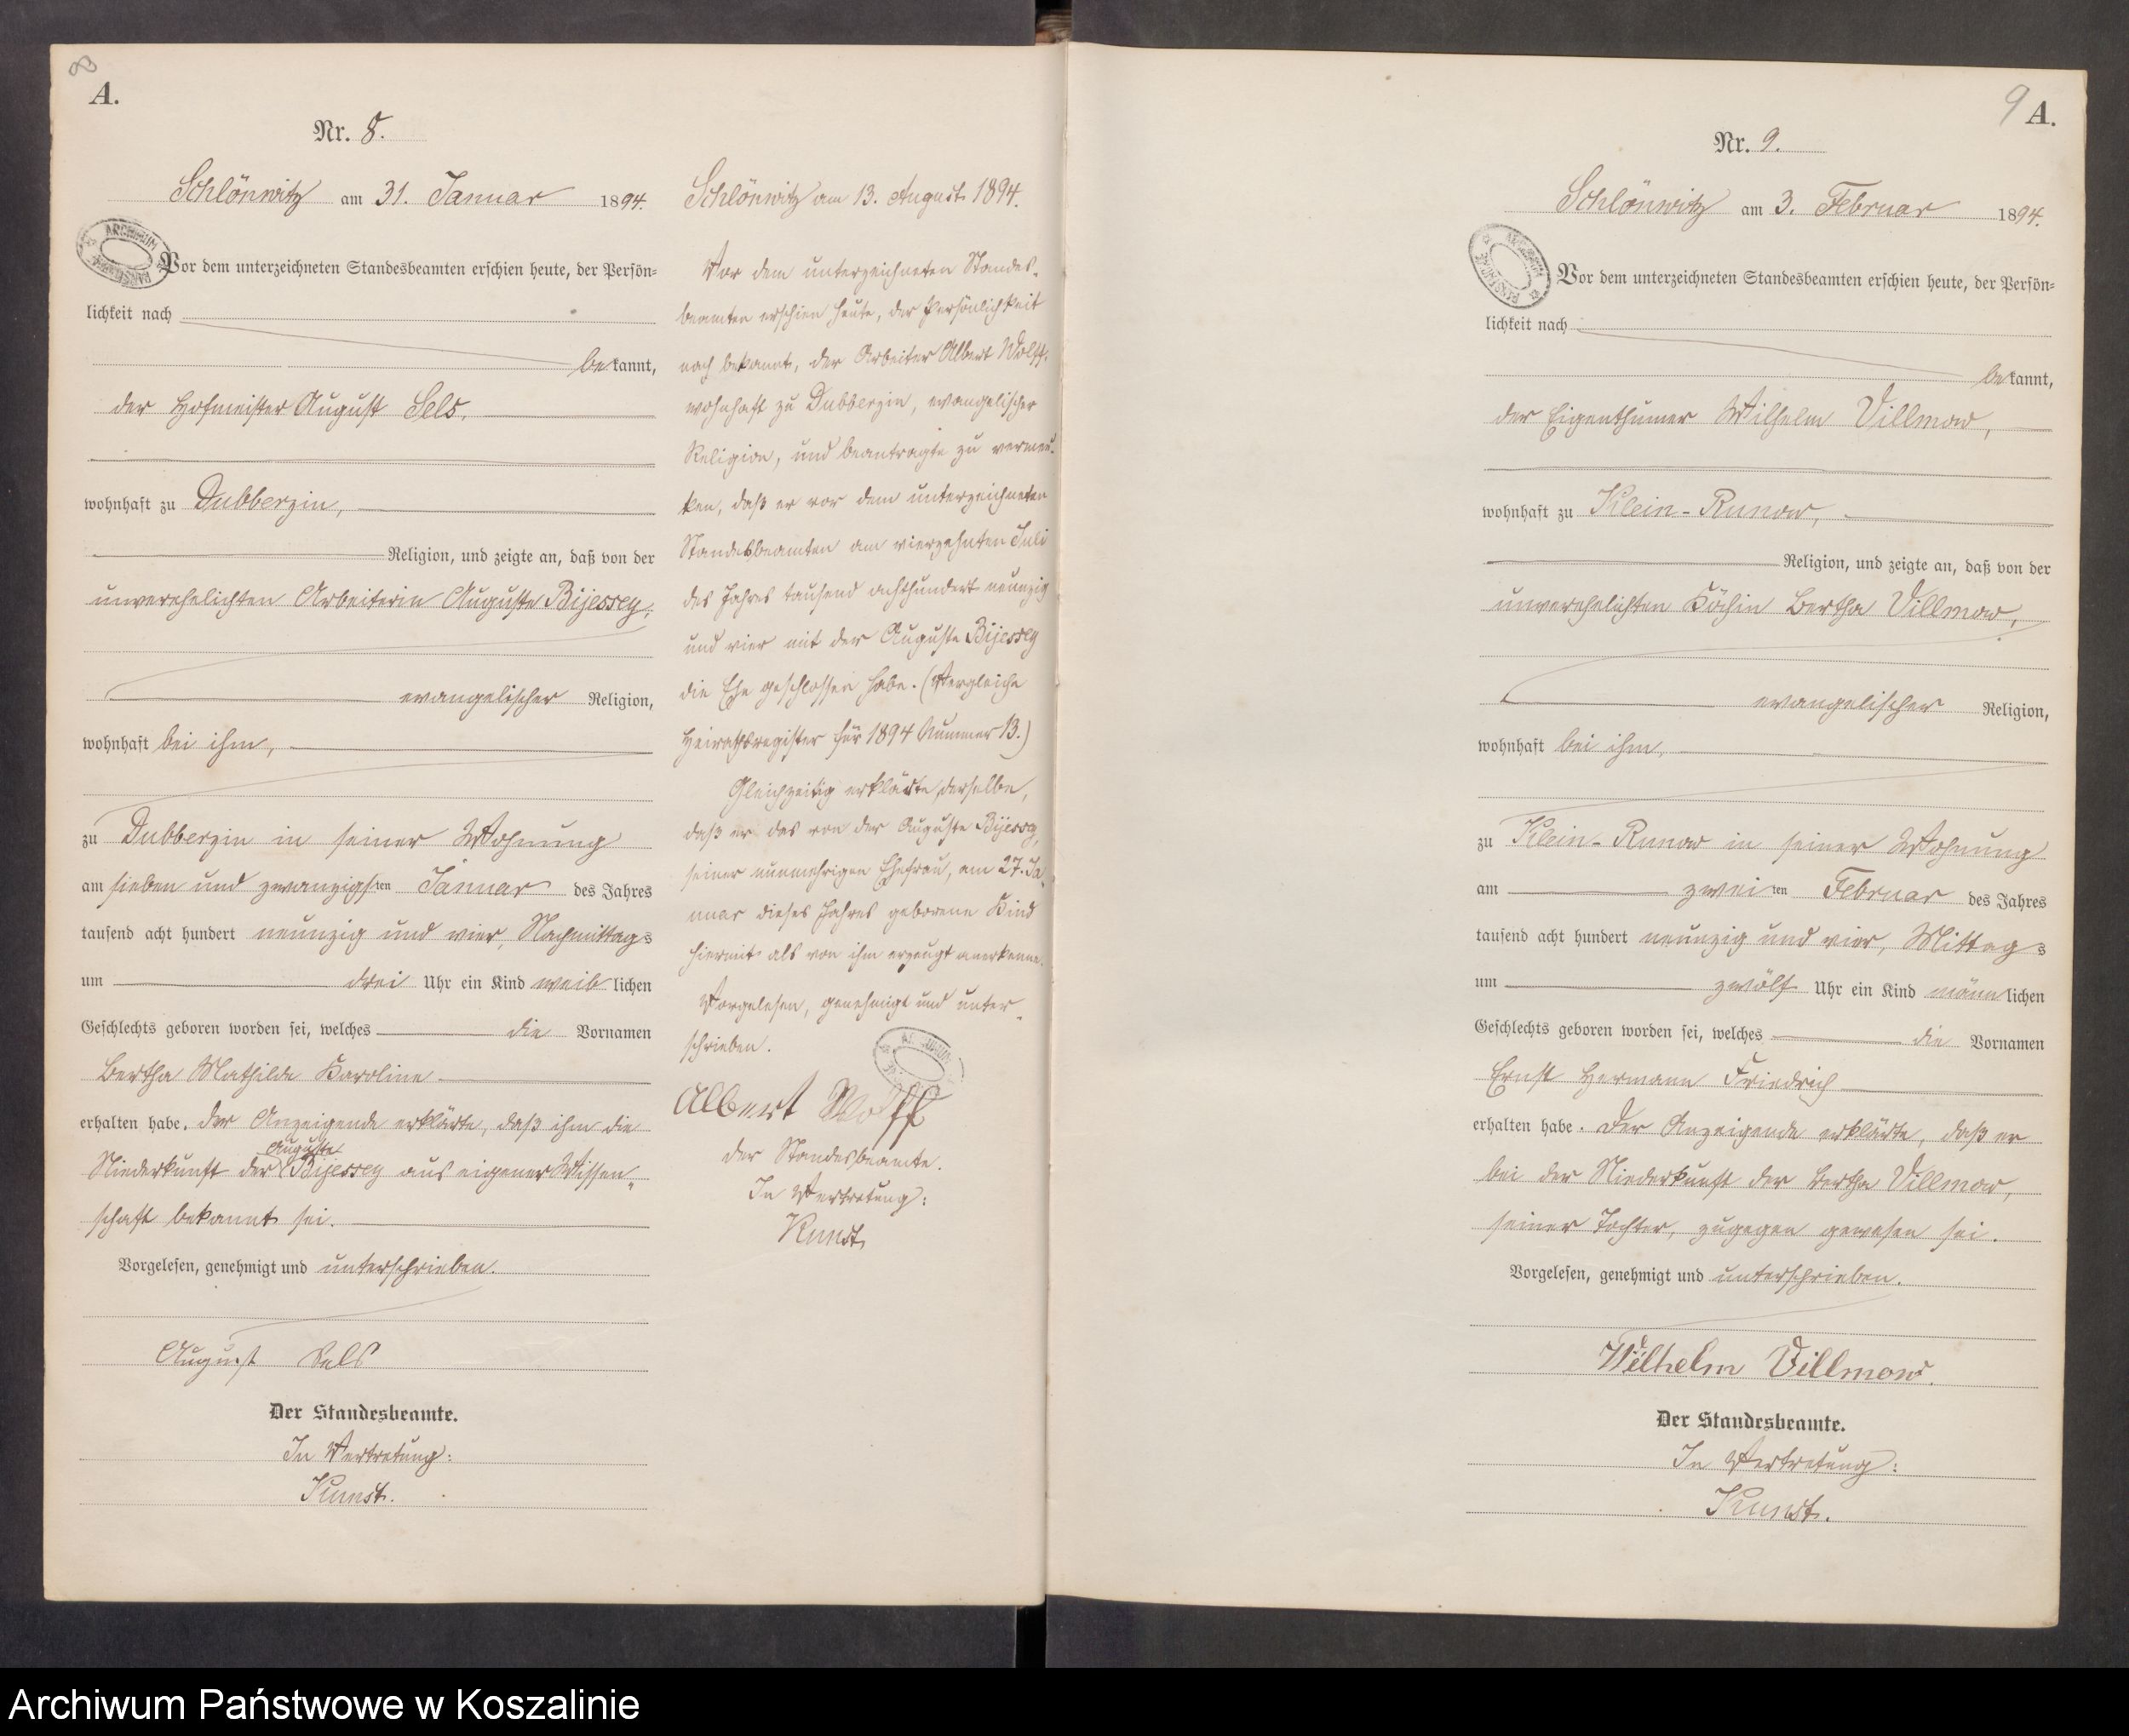 8
A.
Nr. 8.
Schlönwitz am 31. Januar 1894.
Vor dem unterzeichneten Standesbeamten erschien heute, der Persön=
lichkeit nach
bekannt,
der Hofmeister August Sels,
wohnhaft zu Dubberzin,
Religion, und zeigte an, daß von der
unverehelichten Arbeiterin Auguste Bijessey,
evangelischer Religion,
wohnhaft bei ihm,
zu Dubberzin in seiner Wohnung
am sieben und zwanzigsten Januar des Jahres
tausend acht hundert neunzig und vier, Nachmittags
um drei Uhr ein Kind weiblichen
Geschlechts geboren worden sei, welches die Vornamen
Bertha Mathilde Karoline
erhalten habe. Der Anzeigende erklärte, daß ihm die
Auguste
Niederkunft der Bijessey aus eigener Wissen=
schaft bekannt sei.
Vorgelesen, genehmigt und unterschrieben.
August Sels
Der Standesbeamte.
In Vertretung:
Kunst.
Schlönwitz am 13. August 1894.
Vor dem unterzeichneten Standes=
beamten erschien heute, der Persönlichkeit
nach bekannt, der Arbeiter Albert Wolff,
wohnhaft zu Dubberzin, evangelischer
Religion, und beantragte zu vermer=
ken, daß er vor dem unterzeichneten
Standesbeamten am vierzehnten Juli
des Jahres tausend achthundert neunzig
und vier mit der Auguste Bijessey
die Ehe geschlossen habe. (Vergleiche
Heirathsregister für 1894 Nummer 13.)
Gleichzeitig erklärte derselbe,
daß er das von der Auguste Bijessey,
seiner nunmehrigen Ehefrau, am 27. Ja=
nuar dieses Jahres geborene Kind
hiermit als von ihm erzeugt anerkenne.
Vorgelesen, genehmigt und unter=
schrieben.
Albert Wolff
Der Standesbeamte.
In Vertretung:
Kunst.
9 A.
Nr. 9.
Schlönwitz am 3. Februar 1894.
Vor dem unterzeichneten Standesbeamten erschien heute, der Persön=
lichkeit nach
bekannt,
der Eigenthümer Wilhelm Villmow,
wohnhaft zu Klein-Runow,
Religion, und zeigte an, daß von der
unverehelichten Köchin Bertha Villmow,
evangelischer Religion,
wohnhaft bei ihm,
zu Klein-Runow in seiner Wohnung
am zweiten Februar des Jahres
tausend acht hundert neunzig und vier, Mittags
um zwölf Uhr ein Kind männlichen
Geschlechts geboren worden sei, welches die Vornamen
Ernst Hermann Friedrich
erhalten habe. Der Anzeigende erklärte, daß er
bei der Niederkunft der Bertha Villmow,
seiner Tochter, zugegen gewesen sei.
Vorgelesen, genehmigt und unterschrieben.
Wilhelm Villmow.
Der Standesbeamte.
In Vertretung:
Kunst.
Archiwum Państwowe w Koszalinie